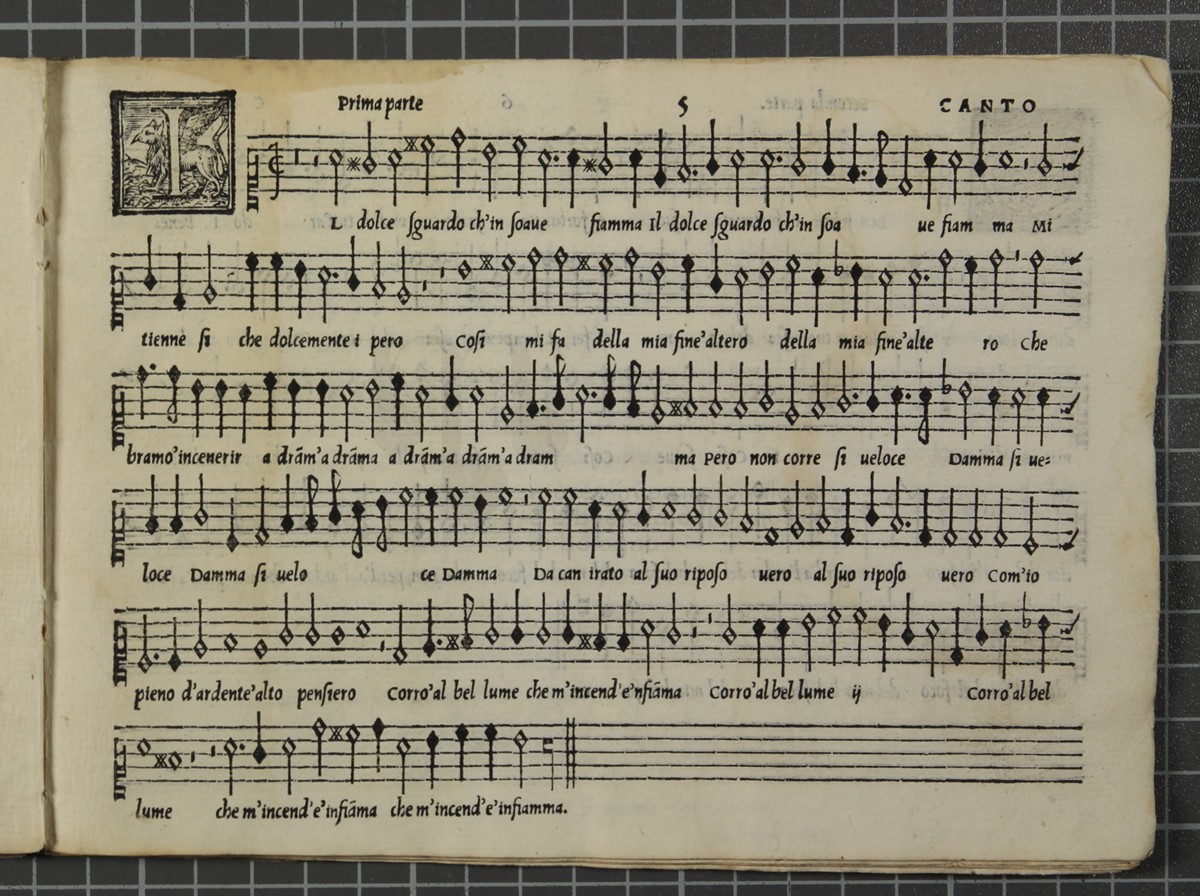 Prima parte 5 CANTO
IL dolce sguardo ch'in soaue fiamma Il dolce sguardo ch'in soa ue fiam ma Mi
tienne si che dolcemente i pero Cosi mi fa della mia fine'altero della mia fine'alte ro Che
bramo'incenerir a drām'a drāma a drām'a drām'a dram ma Pero non corre si ueloce Damma si ue=
loce Damma si uelo ce Damma Da can irato al suo riposo uero al suo riposo uero Com'io
pieno d'ardente'alto pensiero Corro'al bel lume che m'incend'e'nfiāma Corro'al bel lume ij Corro'al bel
lume che m'incend'e'infiāma che m'incend'e'infiamma.